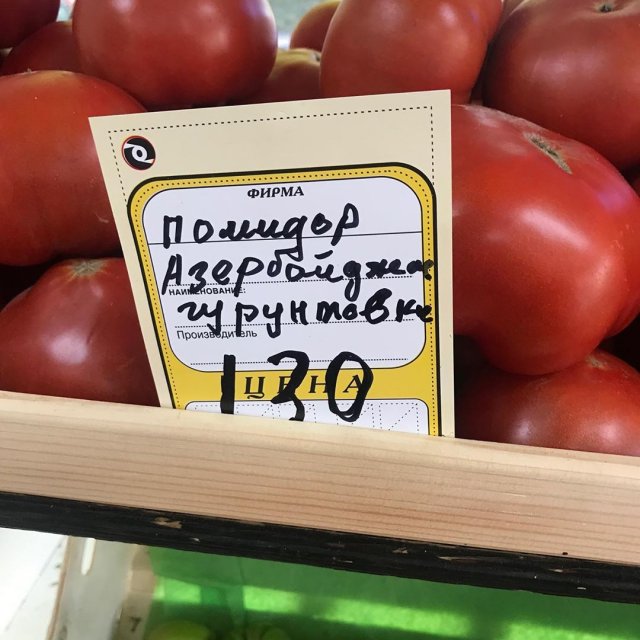 ФИРМА
Помидор
Азербойджан
НАИМЕНОВАНИЕ:
гурунтовке
Производитель
ЦЕНА
130